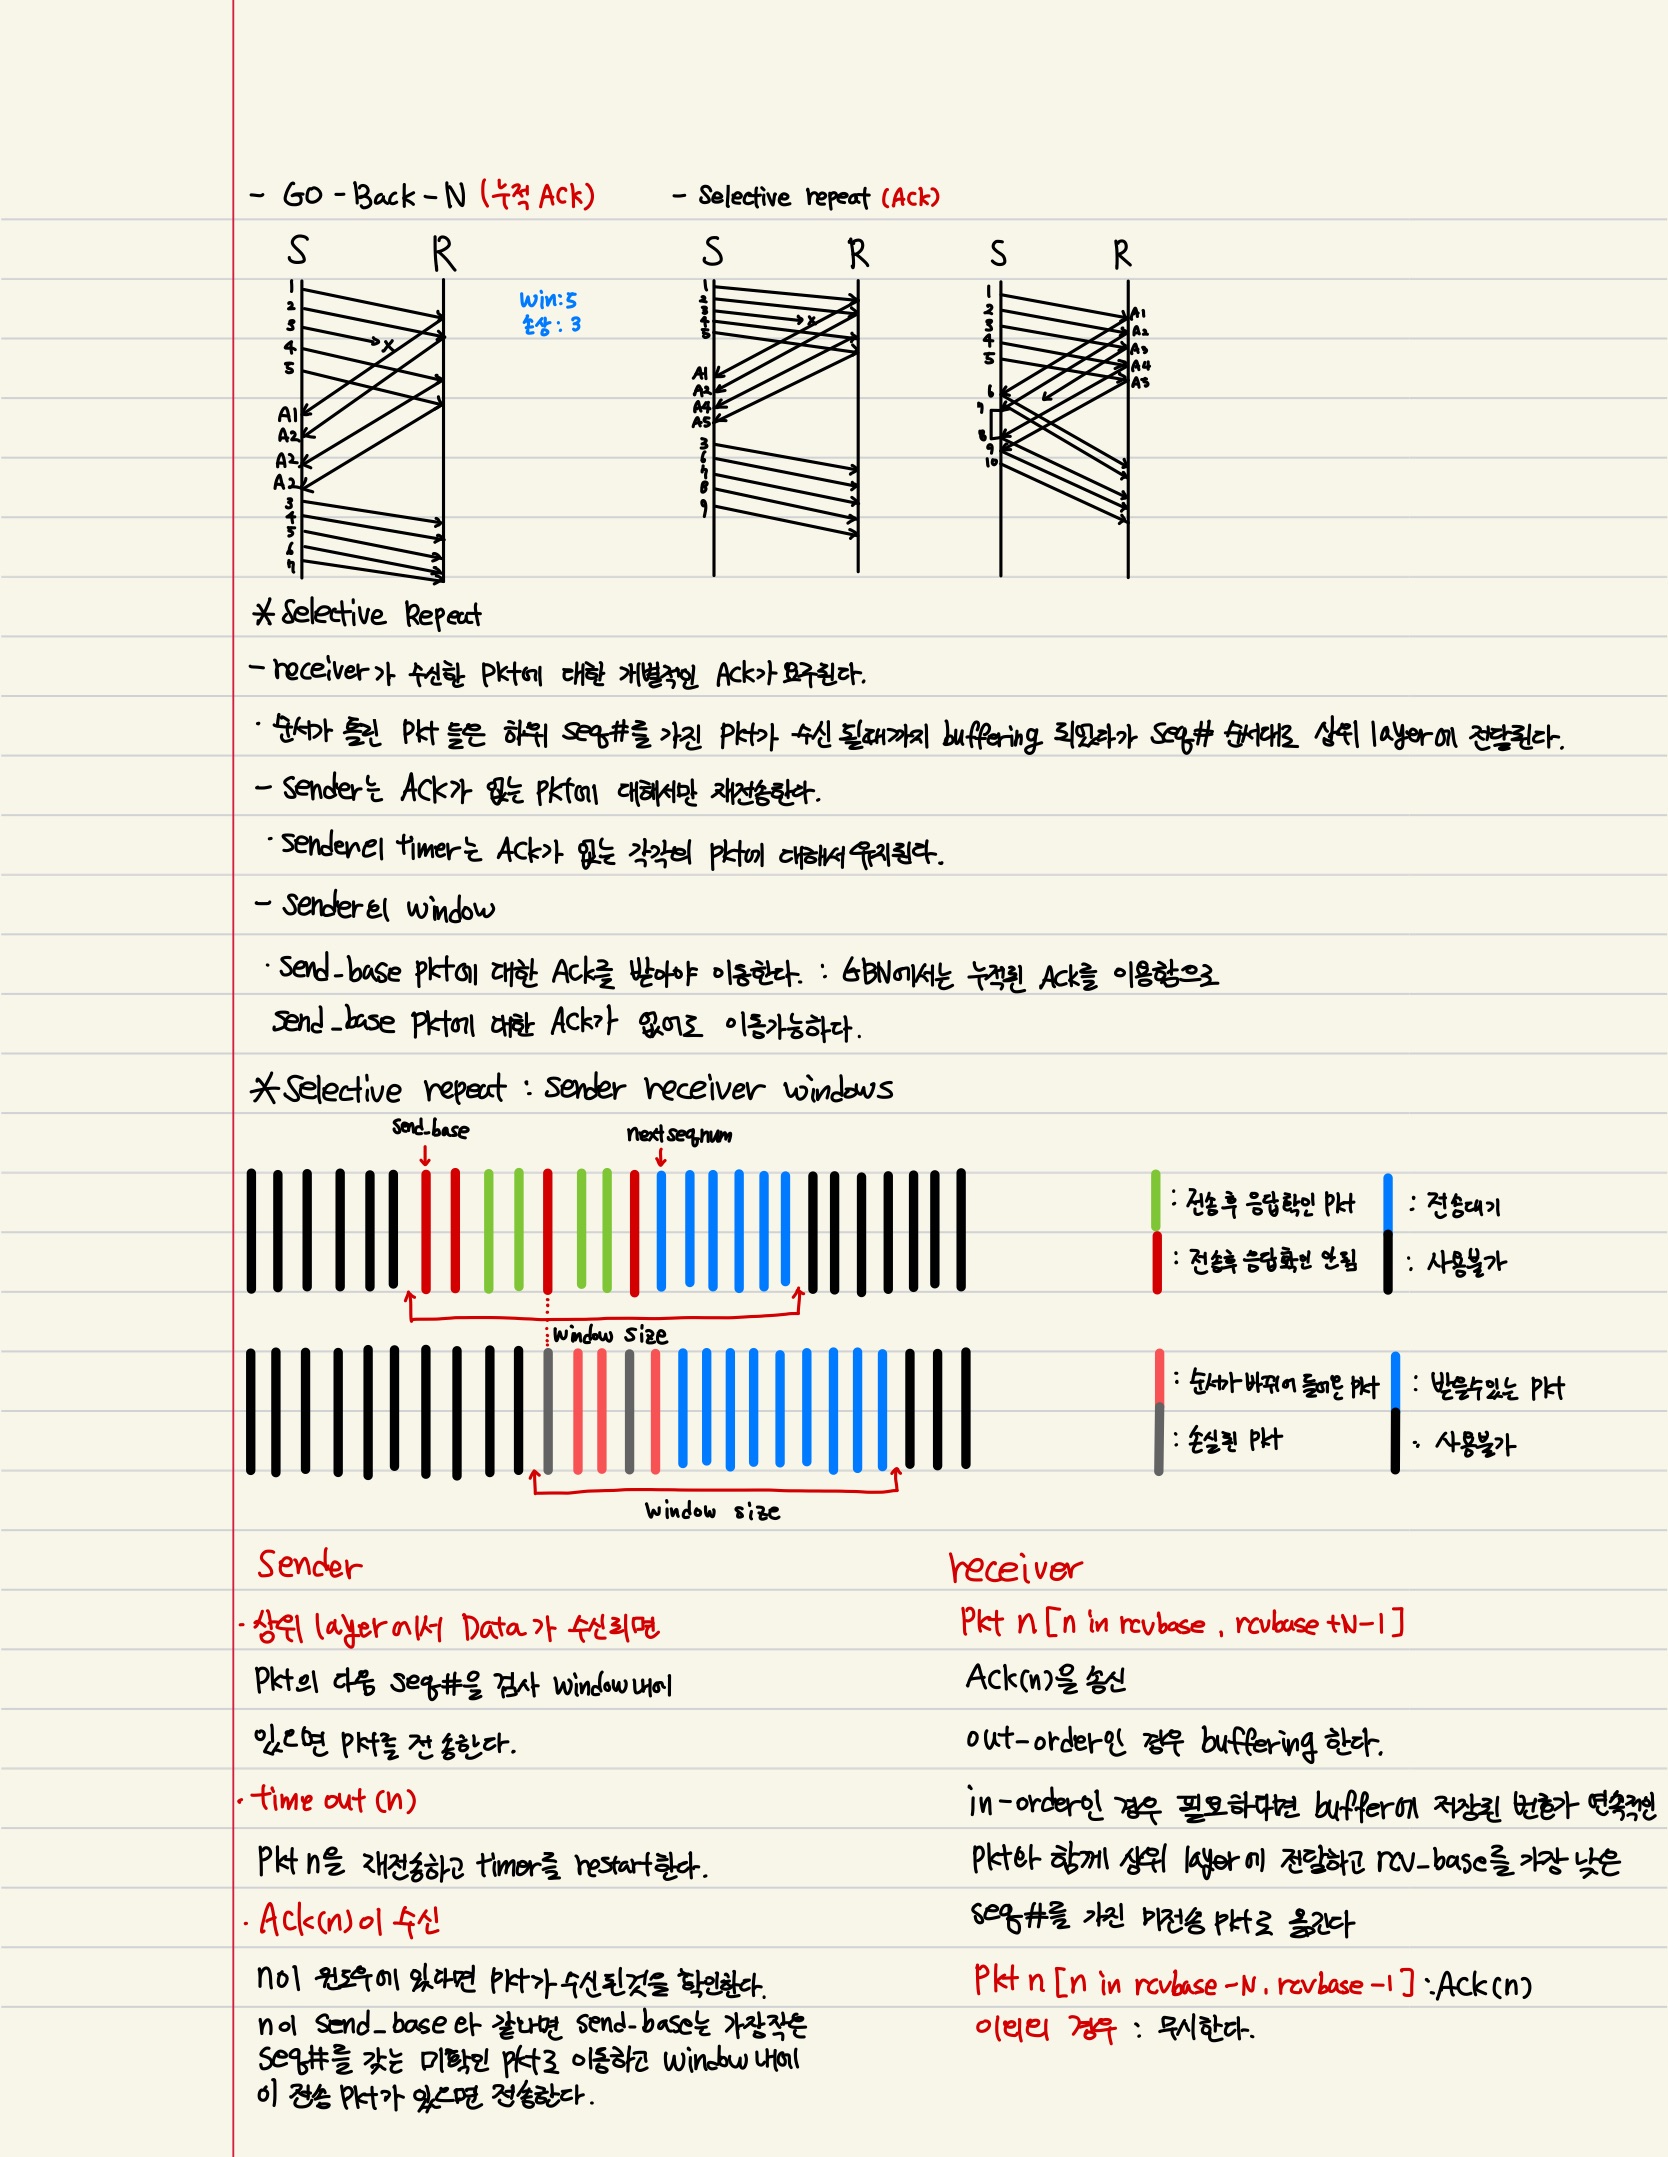 - Go-Back-N (누적 Ack)
- Selective repeat (Ack)
S R
Win:5
손상: 3
1
2
3
x
4
5
A1
A2
A2
A2
3
4
5
6
7
S R
1
2
3
x
4
5
A1
A2
A4
A5
3
6
7
8
9
S R
1
2
3
4
5
6
7
8
9
10
A1
A2
A3
A4
A5
* Selective Repeat
- receiver가 수신한 Pkt에 대한 개별적인 Ack가 요구된다.
· 순서가 틀린 Pkt 들은 하위 seq#를 가진 Pkt가 수신 될때까지 buffering 되있다가 seq# 순서대로 상위 layer에 전달된다.
- sender는 ACK가 없는 Pkt에 대해서만 재전송한다.
· sender의 timer는 Ack가 없는 각각의 Pkt에 대해서 유지된다.
- sender의 window
· Send_base Pkt에 대한 Ack를 받아야 이동한다. : GBN에서는 누적된 Ack를 이용함으로
send_base Pkt에 대한 Ack가 없어도 이동가능하다.
* Selective repeat : sender receiver windows
send_base
nextseqnum
window size
: 전송후 응답확인 Pkt
: 전송대기
: 전송후 응답확인 안됨
: 사용불가
window size
: 순서가 바뀌어 들어온 Pkt
: 받을수있는 Pkt
: 손실된 Pkt
: 사용불가
Sender
· 상위 layer에서 Data가 수신되면
Pkt의 다음 seq#을 검사 window내에
있으면 Pkt를 전송한다.
· time out (n)
Pkt n을 재전송하고 timer를 restart한다.
· Ack(n)이 수신
n이 윈도우에 있다면 Pkt가 수신된것을 확인한다.
n이 send_base와 같다면 send-base는 가장작은
seq#를 갖는 미확인 Pkt로 이동하고 window내에
이 전송 Pkt가 있으면 전송한다.
receiver
Pkt n [n in rcvbase, rcvbase+N-1]
Ack(n)을 송신
out-order인 경우 buffering 한다.
in-order인 경우 필요하다면 buffer에 저장된 번호가 연속적인
Pkt와 함께 상위 layer에 전달하고 rcv_base를 가장 낮은
seq#를 가진 미전송 Pkt로 옮긴다
Pkt n [n in rcvbase-N, rcvbase-1] : Ack(n)
이외의 경우 : 무시한다.